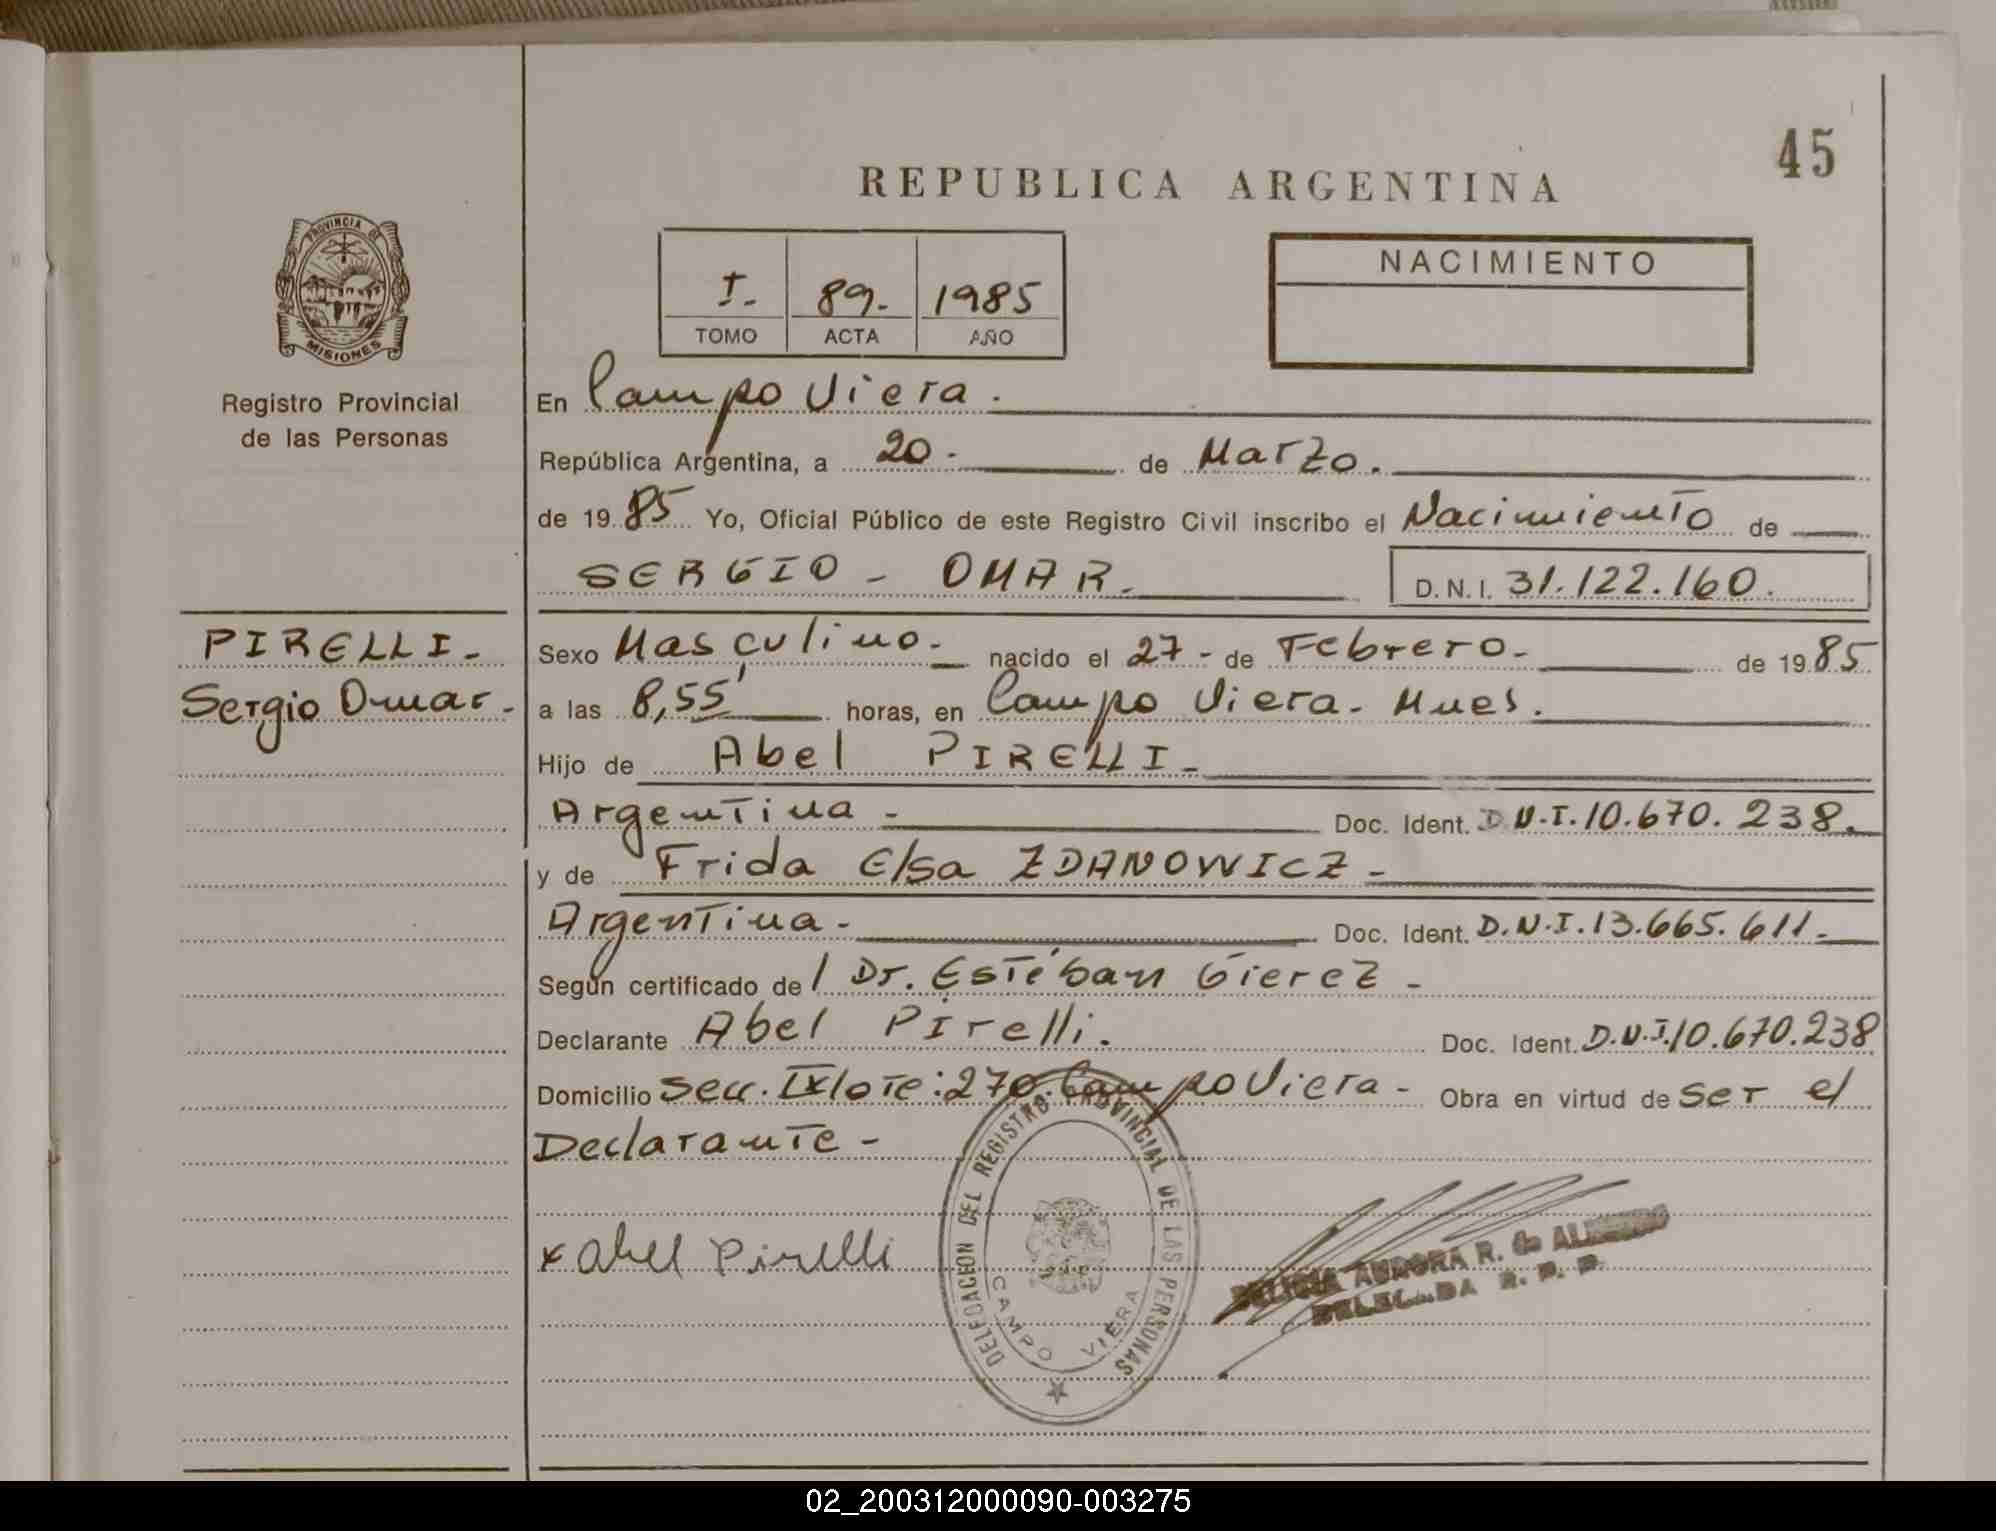 45
REPUBLICA ARGENTINA
PROVINCIA DE
MISIONES
Registro Provincial
de las Personas
I. 89. 1985
TOMO ACTA AÑO
NACIMIENTO
En Campo Viera.
República Argentina, a 20. de Marzo.
de 1985 Yo, Oficial Público de este Registro Civil inscribo el Nacimiento de
SERGIO - OMAR. D.N.I. 31.122.160.
PIRELLI.
Sergio Omar.
Sexo Masculino. nacido el 27 - de Febrero. de 1985
a las 8,55' horas, en Campo Viera. Mnes.
Hijo de Abel PIRELLI.
Argentina - Doc. Ident. D.N.I.10.670.238.
y de Frida Elsa ZDANOWICZ -
Argentina - Doc. Ident. D.N.I.13.665.611.
Según certificado del Dr. Estéban Gierez -
Declarante Abel Pirelli. Doc. Ident. D.N.I.10.670.238
Domicilio Secc. IX lote: 270. Campo Viera - Obra en virtud de ser el
Declarante -
x Abel Pirelli
DELEGACION DEL REGISTRO PROVINCIAL DE LAS PERSONAS
CAMPO VIERA
AURORA R. de
DELEGADA R. P. P.
02_200312000090-003275